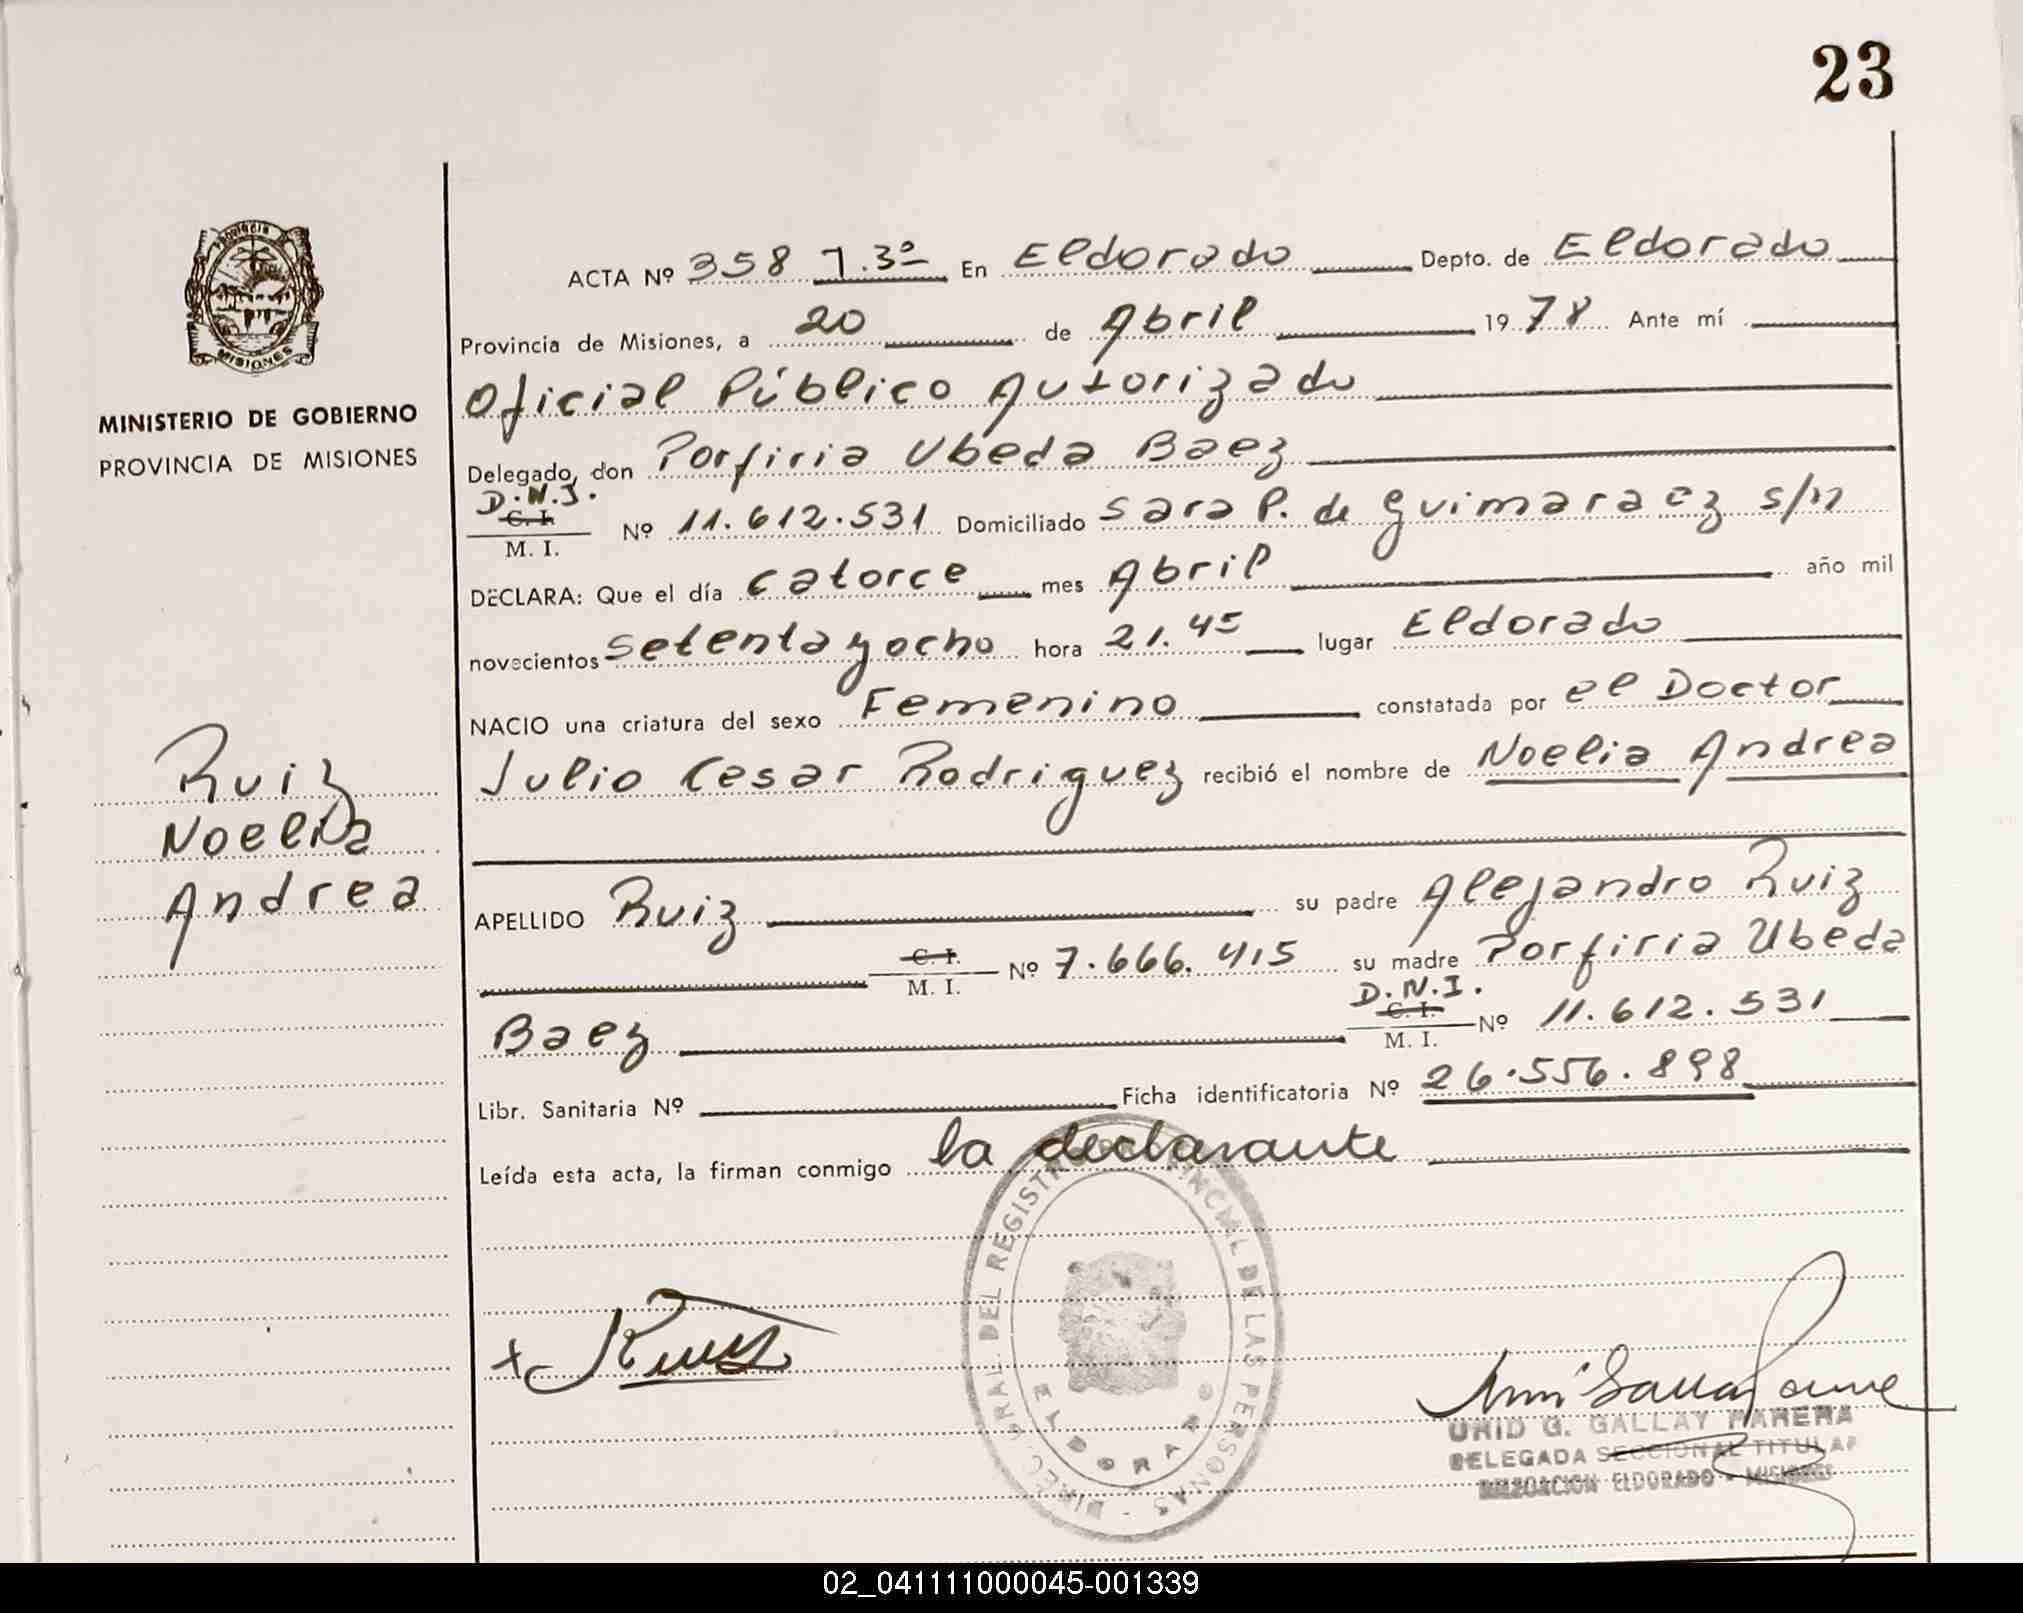 23
PROVINCIA
MISIONES
MINISTERIO DE GOBIERNO
PROVINCIA DE MISIONES
Ruiz
Noelia
Andrea
ACTA Nº 358 T.3º En Eldorado Depto. de Eldorado
Provincia de Misiones, a 20 de Abril 1978 Ante mí
Oficial Público Autorizado
Delegado, don Porfiria Ubeda Baez
D.N.I.
C. I.
M. I. Nº 11.612.531 Domiciliado Sara P. de Guimaraez s/n
DECLARA: Que el día catorce mes Abril año mil
novecientos setenta y ocho hora 21.45 lugar Eldorado
NACIO una criatura del sexo Femenino constatada por el Doctor
Julio Cesar Rodriguez recibió el nombre de Noelia Andrea
APELLIDO Ruiz su padre Alejandro Ruiz
C. I.
M. I. Nº 7.666.415 su madre Porfiria Ubeda
D.N.I.
Baez C. I.
M. I. Nº 11.612.531
Libr. Sanitaria Nº Ficha identificatoria Nº 26.556.898
Leída esta acta, la firman conmigo la declarante
DIREC. GRAL. DEL REGISTRO PROVINCIAL DE LAS PERSONAS
ELDORADO
x Ruiz
G. GALLAY PARERA
DELEGADA SECCIONAL TITULAR
DELEGACION ELDORADO - MISIONES
02_041111000045-001339